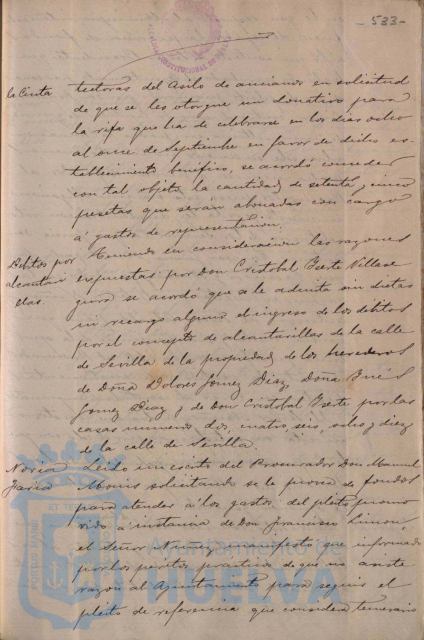 -533-
la Cinta
tectoras del Asilo de ancianos en solicitud
de que se les otorgue un donativo para
la rifa que ha de celebrarse en los dias ocho
al once de Septiembre en favor de dicho es-
tablecimiento benéfico, se acordó conceder
con tal objeto la cantidad de setenta y cinco
pesetas que serán abonadas con cargo
á gastos de representación.
Débitos por
alcantari
llas.
Teniendo en consideración las razones
expuestas por Don Cristobal Villase
ñor se acordó que se le admita sin dietas
ni recargo alguno el ingreso de los debitos
por el concepto de alcantarillas de la calle
de Sevilla de la propiedad de los herederos
de Doña Dolores Gomez Diaz, Doña Inés
Gomez Diaz y de Don Cristobal por las
casas numeros dos, cuatro, seis, ocho y diez
de la calle de Sevilla.
Noria
Leido un escrito del Procurador Don Manuel
solicitando se le provea de fondos
para atender á los gastos del pleito promo
vido á instancia de Don Francisco Limon,
el Señor Nuñez manifestó que informado
por los peritos practicos de que no asiste
razon al Ayuntamiento para seguir el
pleito de referencia que considera temerario
Ayuntamiento de
HUELVA